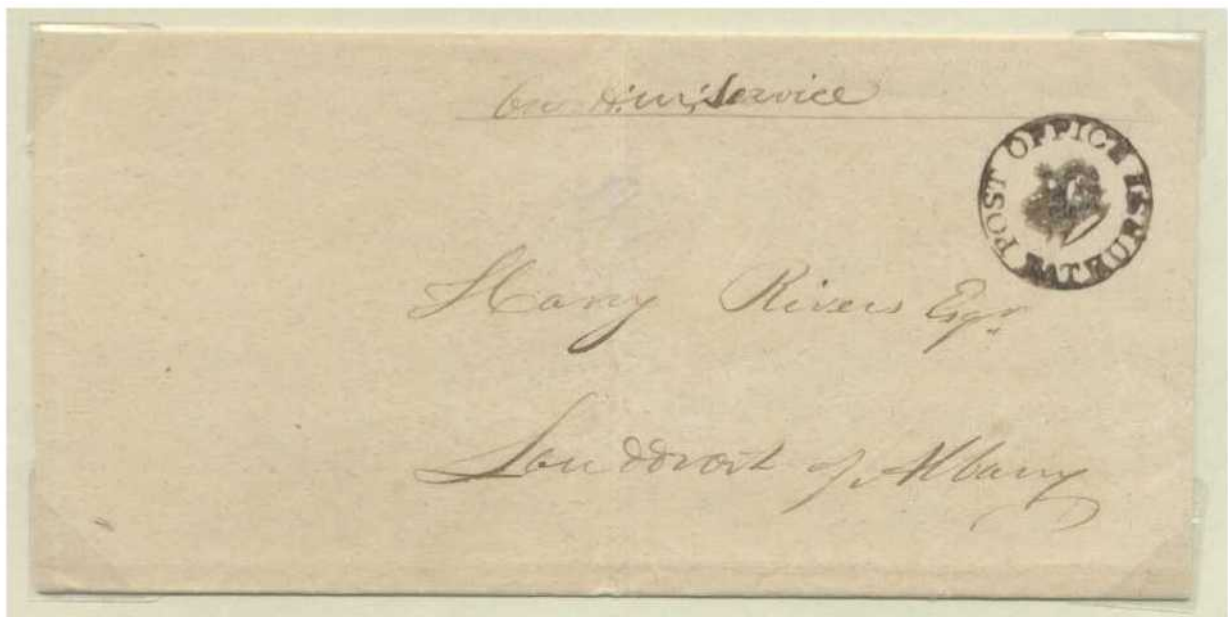 On H: M; Service
POST OFFICE BATHURST
Harry Rivers Esqr.
Landdrost of Albany